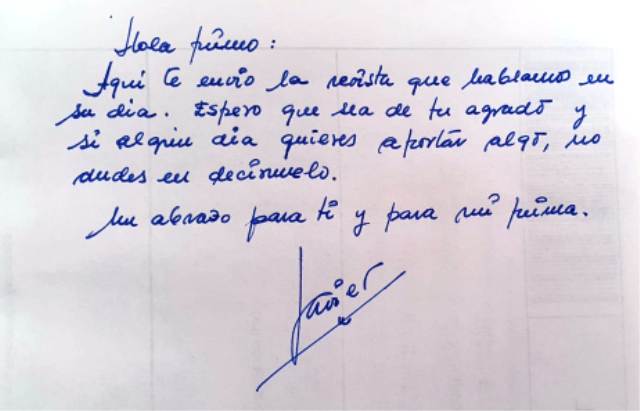 Hola primo:
Aqui te envio la revista que hablamos en
su dia. Espero que sea de tu agrado y
si algun dia quieres aportar algo, no
dudes en decirmelo.
Un abrazo para ti y para mi prima.
Javier